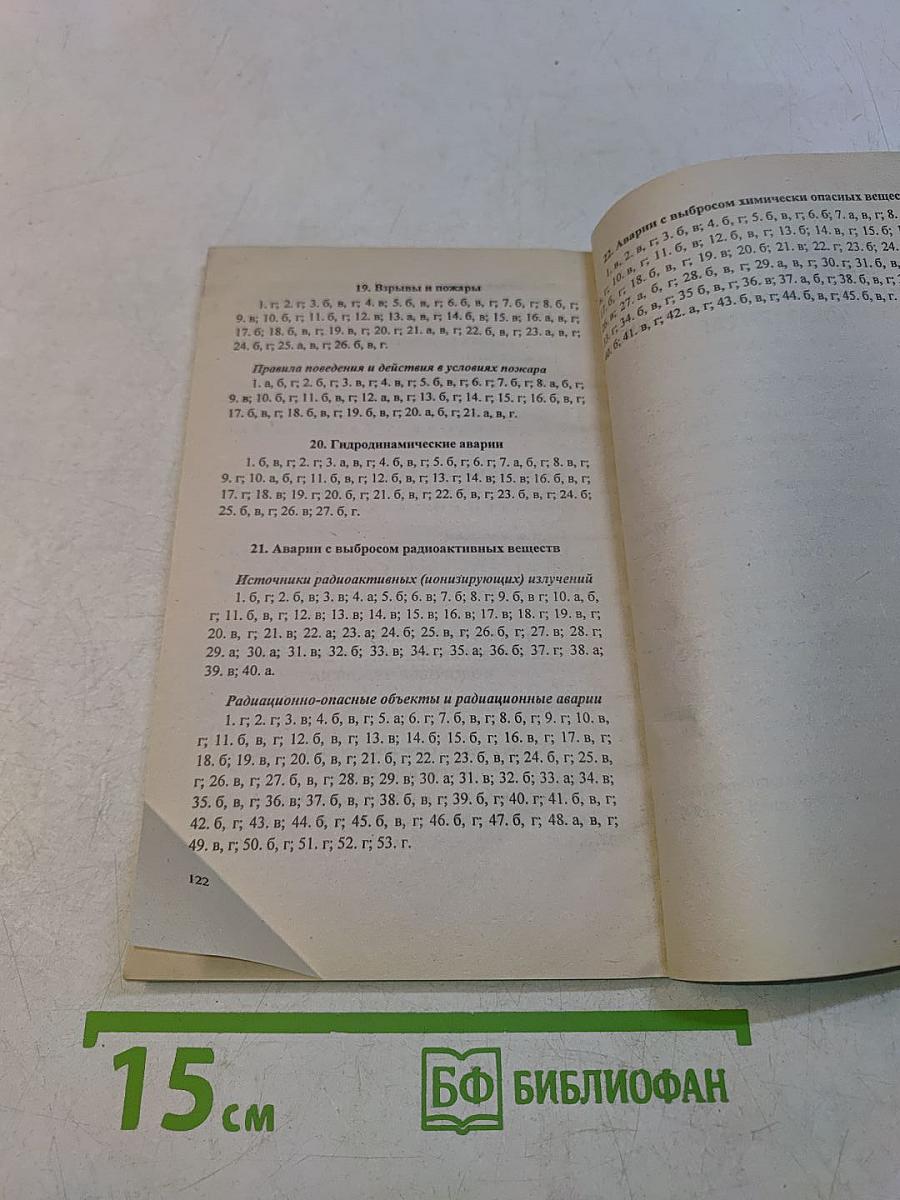 19. Взрывы и пожары
1. г; 2. г; 3. б, в, г; 4. в; 5. б, в, г; 6. б, в, г; 7. б, г; 8. б, г;
9. в; 10. б, г; 11. б, г; 12. в; 13. а, в, г; 14. б, в; 15. в; 16. а, в, г;
17. б; 18. б, в, г; 19. в, г; 20. г; 21. а, в, г; 22. б, в, г; 23. а, в, г;
24. б, г; 25. а, в, г; 26. б, в, г.
Правила поведения и действия в условиях пожара
1. а, б, г; 2. б, г; 3. в, г; 4. в, г; 5. б, в, г; 6. г; 7. б, г; 8. а, б, г;
9. в; 10. б, г; 11. б, в, г; 12. а, в, г; 13. б, г; 14. г; 15. г; 16. б, в, г;
17. б, в, г; 18. б, в, г; 19. б, в, г; 20. а, б, г; 21. а, в, г.
20. Гидродинамические аварии
1. б, в, г; 2. г; 3. а, в, г; 4. б, в, г; 5. б, г; 6. г; 7. а, б, г; 8. в, г;
9. г; 10. а, б, г; 11. б, в, г; 12. б, в, г; 13. г; 14. в; 15. в; 16. б, в, г;
17. г; 18. в; 19. г; 20. б, г; 21. б, в, г; 22. б, в, г; 23. б, в, г; 24. б;
25. б, в, г; 26. в; 27. б, г.
21. Аварии с выбросом радиоактивных веществ
Источники радиоактивных (ионизирующих) излучений
1. б, г; 2. б, в; 3. в; 4. а; 5. б; 6. в; 7. б; 8. г; 9. б, в г; 10. а, б,
г; 11. б, в, г; 12. в; 13. в; 14. в; 15. в; 16. в; 17. в; 18. г; 19. в, г;
20. в, г; 21. в; 22. а; 23. а; 24. б; 25. в, г; 26. б, г; 27. в; 28. г;
29. а; 30. а; 31. в; 32. б; 33. в; 34. г; 35. а; 36. б; 37. г; 38. а;
39. в; 40. а.
Радиационно-опасные объекты и радиационные аварии
1. г; 2. г; 3. в; 4. б, в, г; 5. а; 6. г; 7. б, в, г; 8. б, г; 9. г; 10. в,
г; 11. б, в, г; 12. б, в, г; 13. в; 14. б; 15. б, г; 16. в, г; 17. в, г;
18. б; 19. в, г; 20. б, в, г; 21. б, г; 22. г; 23. б, в, г; 24. б, г; 25. в,
г; 26. в, г; 27. б, в, г; 28. в; 29. в; 30. а; 31. в; 32. б; 33. а; 34. в;
35. б, в, г; 36. в; 37. б, в, г; 38. б, в, г; 39. б, г; 40. г; 41. б, в, г;
42. б, г; 43. в; 44. б, г; 45. б, в, г; 46. б, г; 47. б, г; 48. а, в, г;
49. в, г; 50. б, г; 51. г; 52. г; 53. г.
122
22. Аварии с выбросом химически опасных
1. в; 2. в, г; 3. б, в; 4. б, г; 5. б, в, г; 6. б; 7. а, в, г; 8.
г; 10. в, г; 11. б, в; 12. б, в, г; 13. б; 14. в, г; 15. б;
б, г; 18. б, в, г; 19. в; 20. б; 21. в; 22. г; 23. б; 24.
в; 27. а, б, г; 28. б, в, г; 29. а, в, г; 30. г; 31. б, в,
г; 34. б, в, г; 35 б, в, г; 36. в; 37. а, б, г; 38. б, в, г;
б; 41. в, г; 42. а, г; 43. б, в, г; 44. б, в, г; 45. б, в, г.
15 см
БФ БИБЛИОФАН